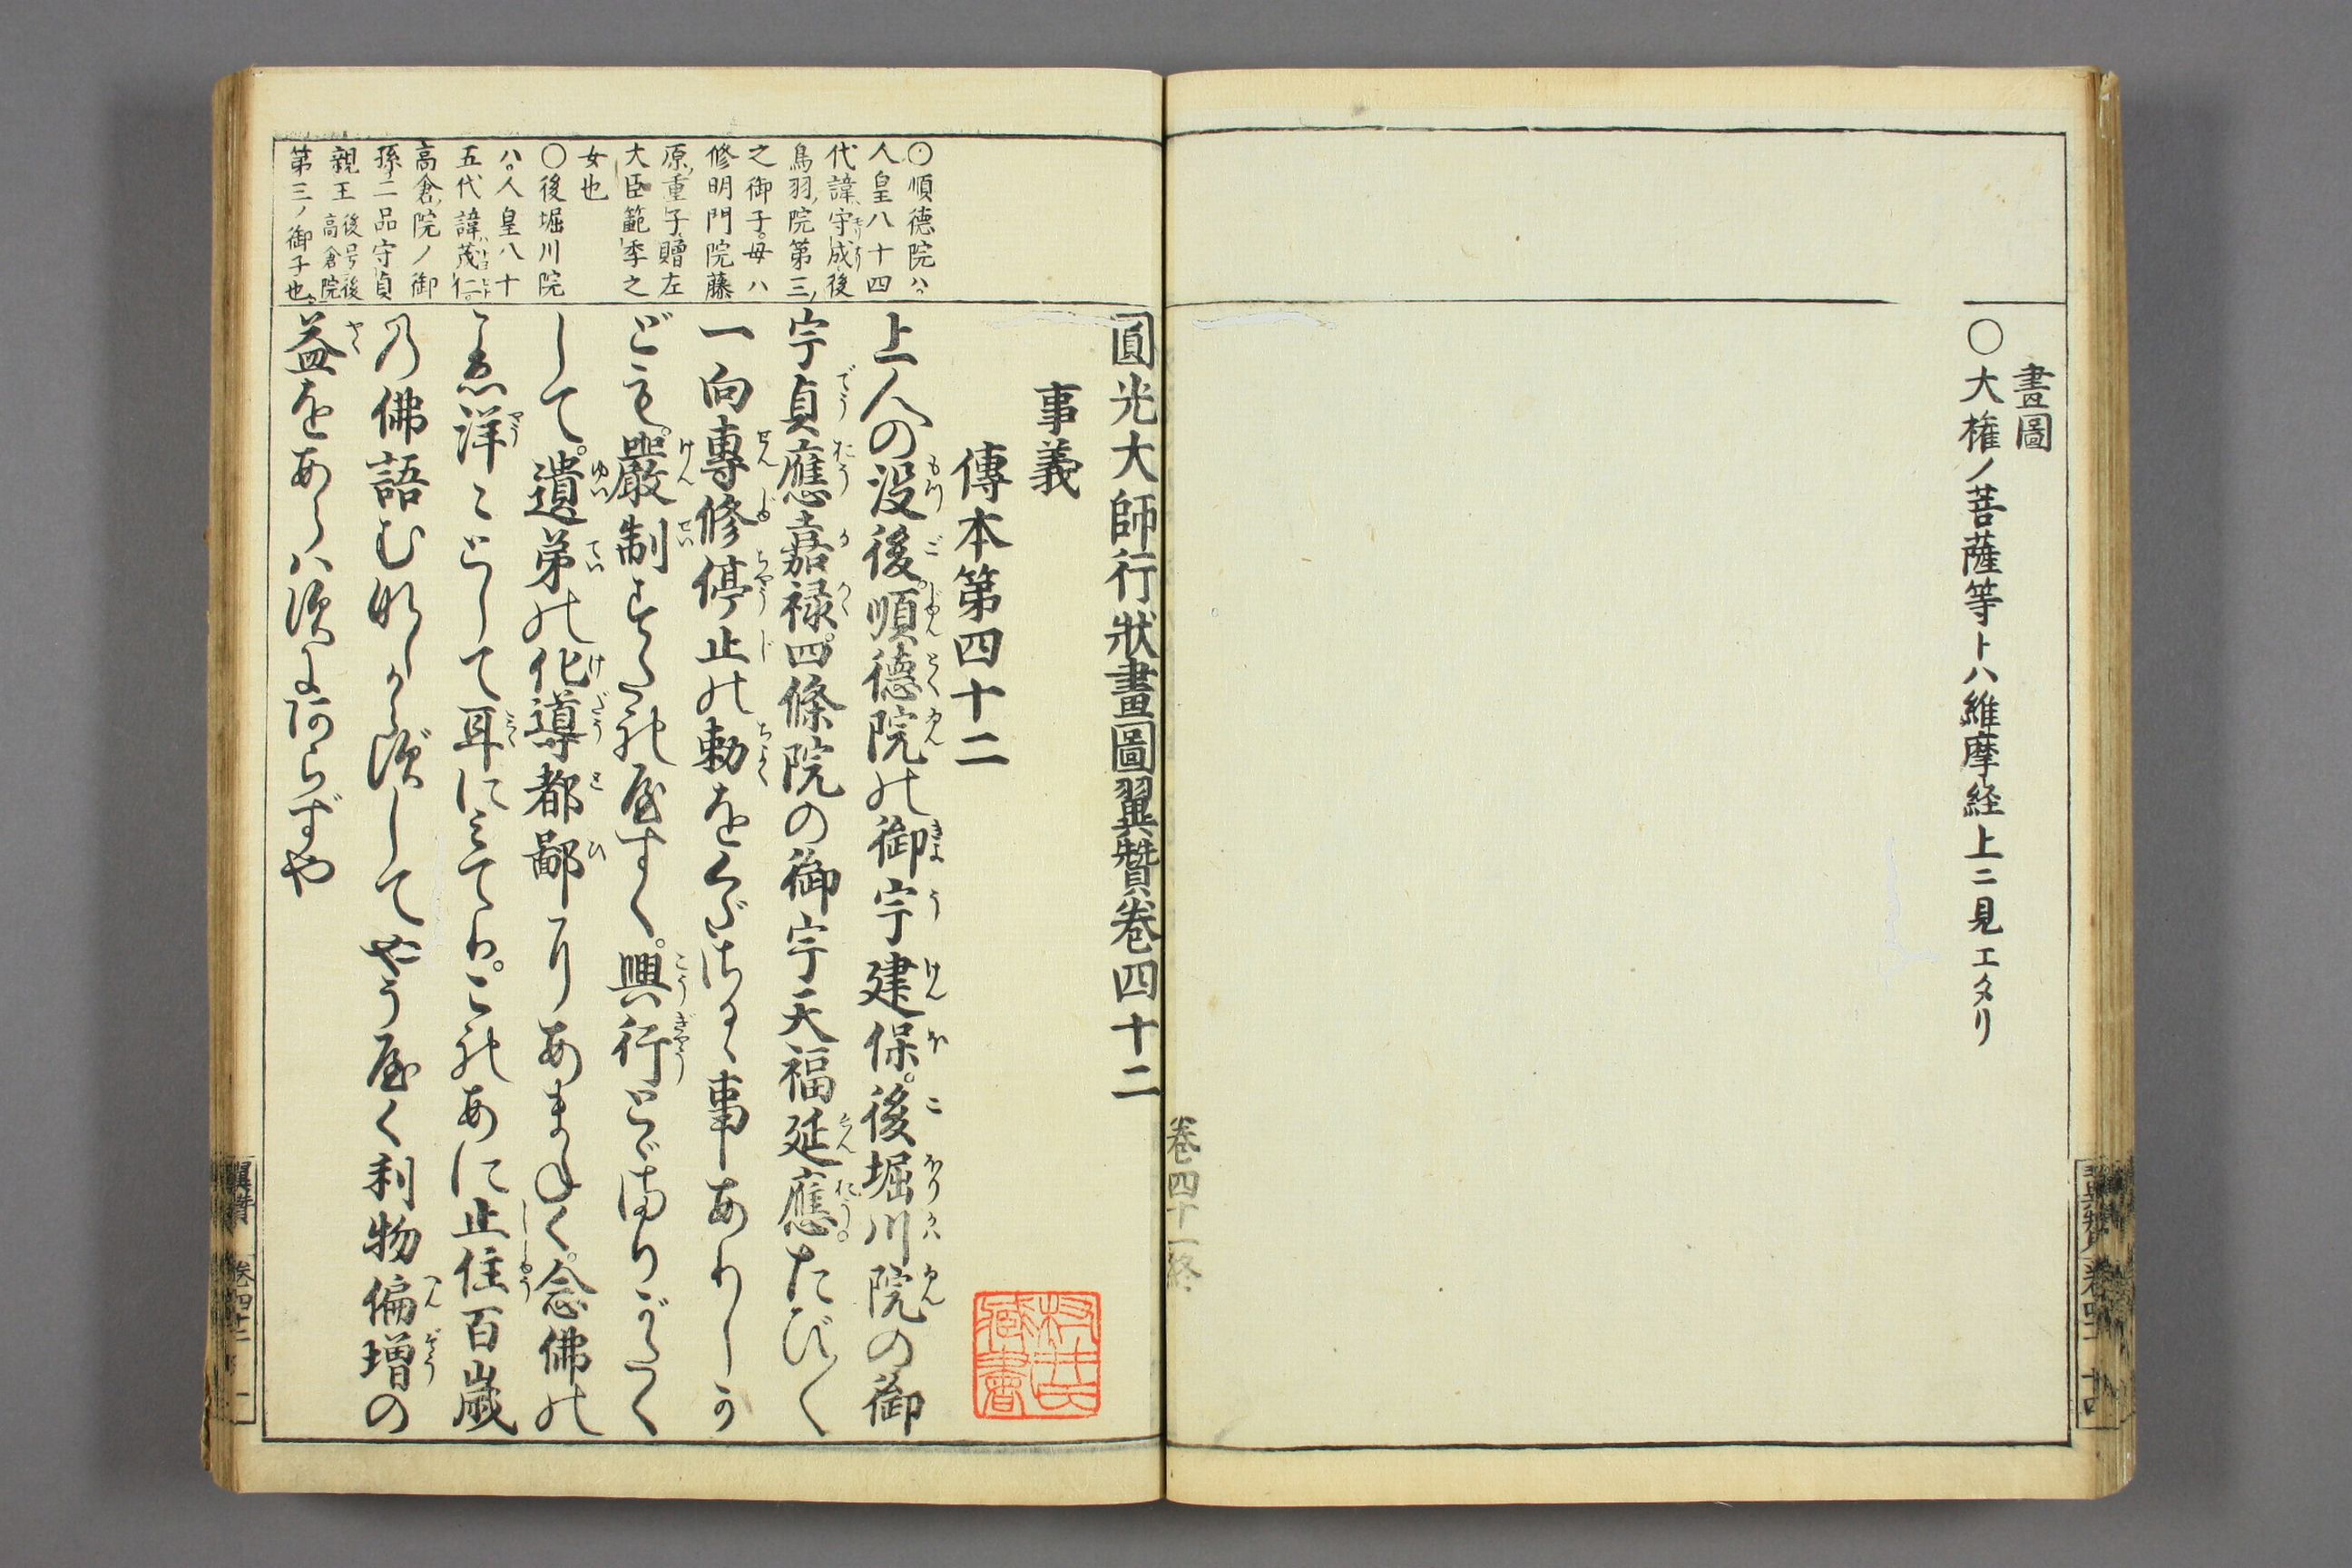 畫圖
○大権ノ菩薩等トハ維摩経上ニ見エタリ
卷四十一終
圓光大師行狀畫圖翼贊卷四十二
事義
傳本第四十二
上人の没後。順徳院の御宇建保。後堀川院の御
宇貞應嘉禄。四條院の御宇天福延應。たび〳〵
一向專修停止の勅をくださるゝ事ありしか
ども。嚴制すたれやすく。興行とゞまりがたく
して。遺弟の化導都鄙にあまねく。念佛の
こゑ洋々として耳にみてり。これあに止住百歳
の佛語むなしからずして。やうやく利物偏増の
益をあらはすにあらずや
○順德院ハ。
人皇八十四
代諱守成後
鳥羽院第三ノ
之御子。母ハ
修明門院藤
原ノ重子贈左
大臣範季之
女也
○後堀川院
ハ。人皇八十
五代諱茂仁。
高倉ノ院ノ御
孫二品守貞
親王後号後高倉院
第三ノ御子也
翼贊 卷四十二 一